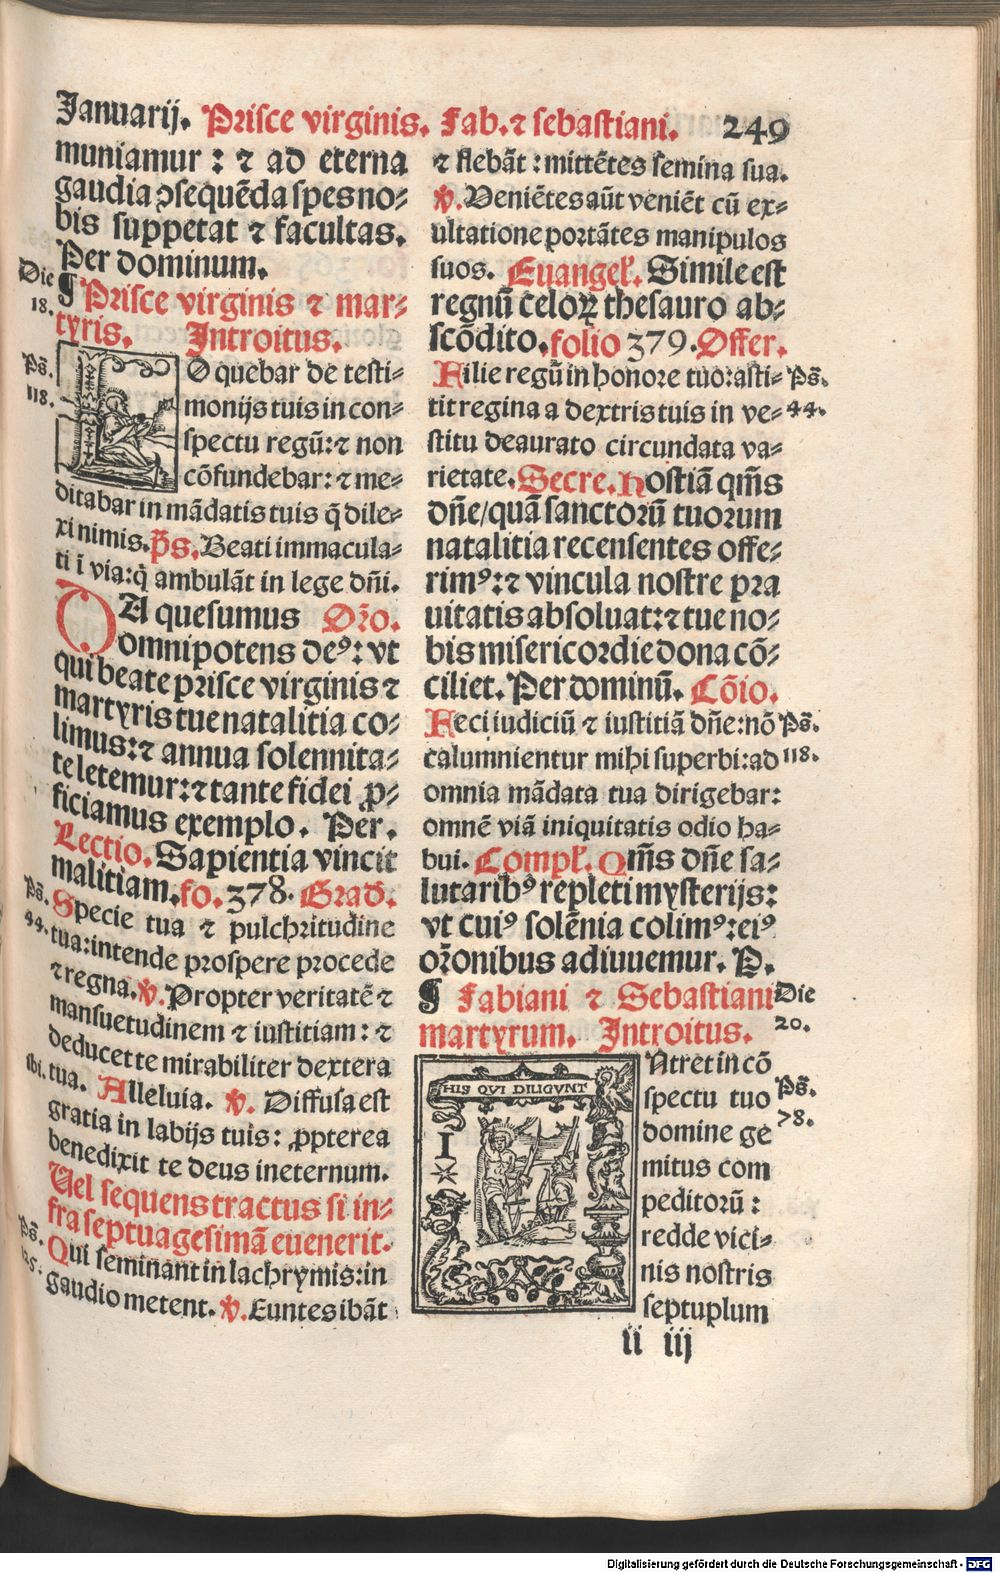 Januarij. Prisce virginis. Fab. ⁊ sebastiani. 249
muniamur : ⁊ ad eterna
gaudia ꝯsequēda spes no⸗
bis suppetat ⁊ facultas.
Per dominum.
Die 18.
¶ Prisce virginis ⁊ mar⸗
tyris. Introitus.
Ps̄. 118.
LOquebar de testi⸗
monijs tuis in con⸗
spectu regū: ⁊ non
cōfundebar: ⁊ me⸗
ditabar in mādatis tuis q̄ dile⸗
xi nimis. p̄s. Beati immacula⸗
ti ī via: q̇ ambulāt in lege dn̄i.
DA quesumus Or̄o.
omnipotens deꝰ: vt
qui beate prisce virginis ⁊
martyris tue natalitia co⸗
limus: ⁊ annua solennita⸗
te letemur: ⁊ tante fidei ꝓ⸗
ficiamus exemplo. Per.
Lectio. Sapientia vincit
malitiam. fo. 378. Grad̄.
Ps̄. 44.
Specie tua ⁊ pulchritudine
tua: intende prospere procede
⁊ regna. ℣. Propter veritatē ⁊
mansuetudinem ⁊ iustitiam: ⁊
deducet te mirabiliter dextera
Ibi.
tua. Alleluia. ℣. Diffusa est
gratia in labijs tuis: ꝓpterea
benedixit te deus in eternum.
Uel sequens tractus si in⸗
fra septuagesimā euenerit.
Ps̄. 125.
Qui seminant in lachrymis: in
gaudio metent. ℣. Euntes ibāt
⁊ flebāt : mittētes semina sua.
℣. Veniētes aūt veniēt cū ex⸗
ultatione portātes manipulos
suos. Euangeł. Simile est
regnū celoꝝ thesauro ab⸗
scōdito. folio 379. Offer.
Filie regū in honore tuo: asti⸗ Ps̄.
tit regina a dextris tuis in ve⸗ 44.
stitu deaurato circundata va⸗
rietate. Secre. Hostiā qm̄s
dn̄e/ quā sanctorū tuorum
natalitia recensentes offe⸗
rimꝰ: ⁊ vincula nostre pra
uitatis absoluat: ⁊ tue no⸗
bis misericordie dona cō⸗
ciliet. Per dominū. Cōio.
Feci iudiciū ⁊ iustitiā dn̄e: nō Ps̄.
calumnientur mihi superbi: ad 118.
omnia mādata tua dirigebar:
omnē viā iniquitatis odio ha⸗
bui. Compł. Qm̄s dn̄e sa⸗
lutaribꝰ repleti mysterijs:
vt cuiꝰ solēnia colimꝰ: eiꝰ
or̄onibus adiuuemur. P.
¶ Fabiani ⁊ Sebastiani Die
martyrum. Introitus. 20.
HIS QVI DILIGVNT
I
Ntret in cō
spectu tuo Ps̄.
domine ge 78.
mitus com
peditorū :
redde vici⸗
nis nostris
septuplum
ii iij
Digitalisierung gefördert durch die Deutsche Forschungsgemeinschaft - DFG